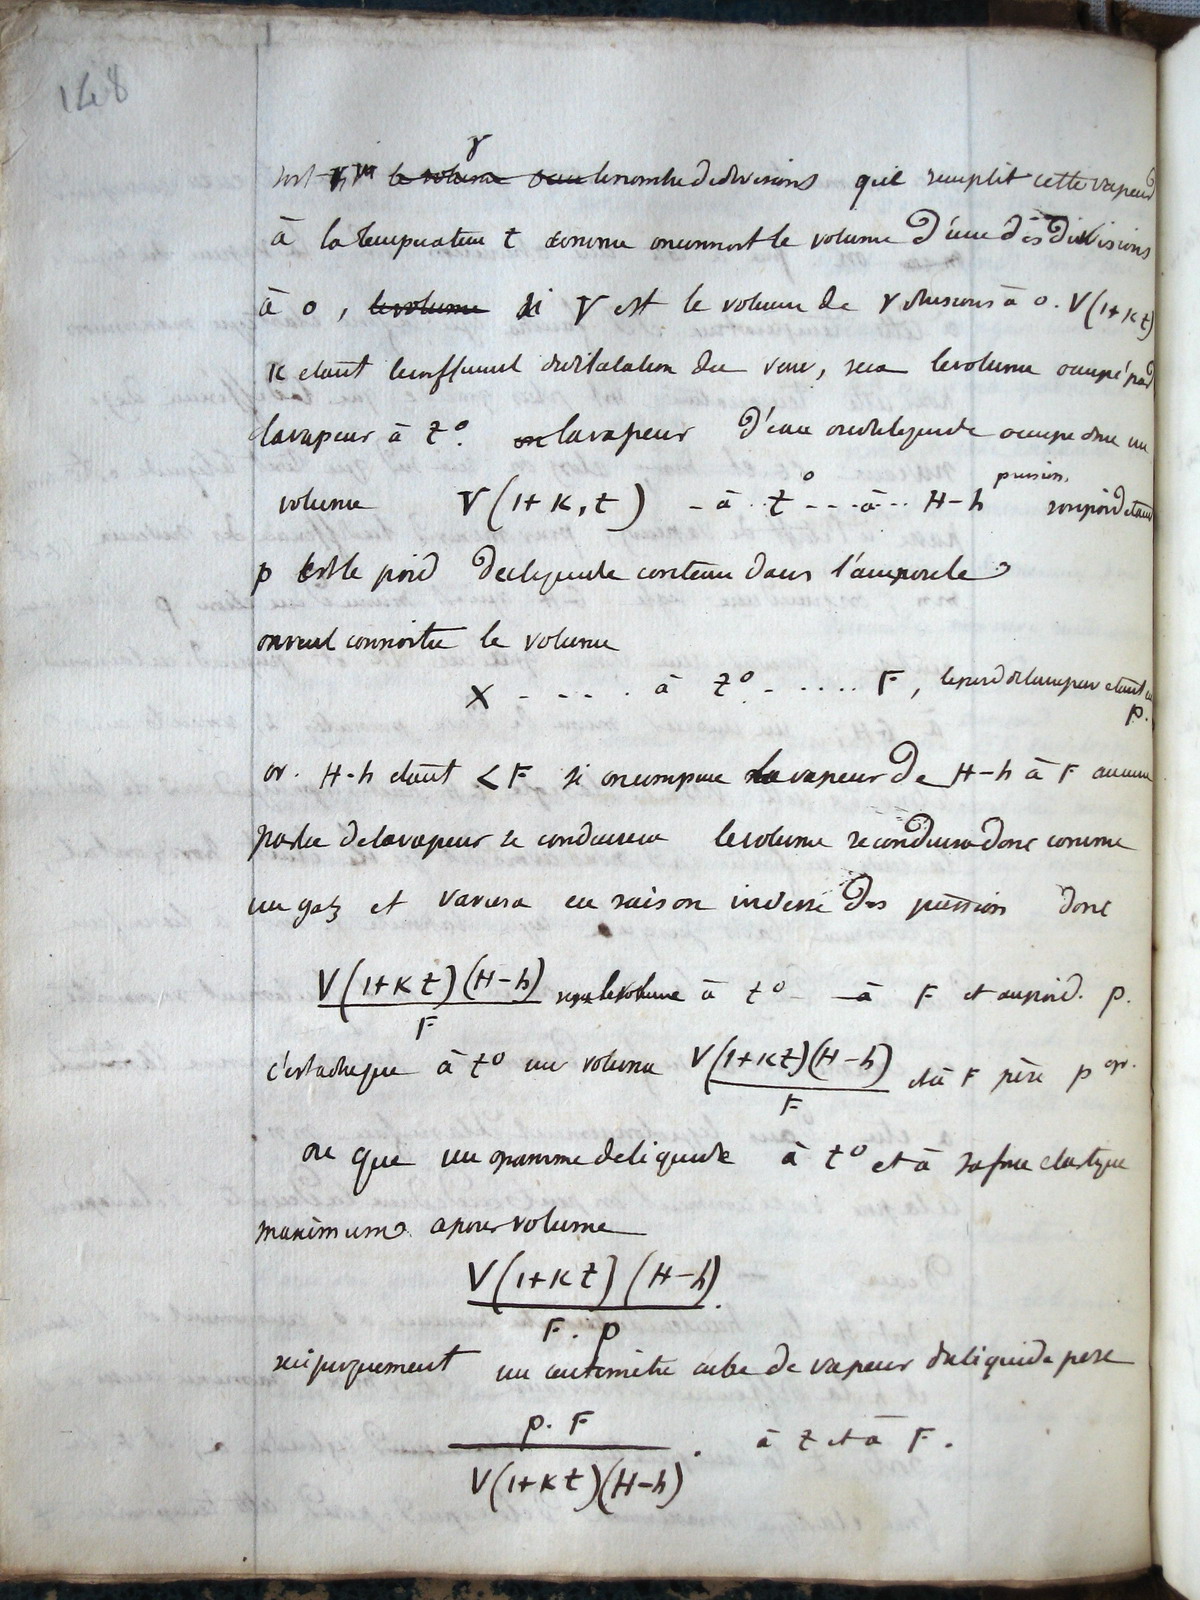 148
γ
soit le volume le nombre de divisions qu'il remplit cette vapeur
à la temperature t comme on connoit le volume d'une des divisions
à 0, le volume si V est le volume de γ divisions à 0. V(1+Kt)
K etant le coefficient de dilatation du verre, sera le volume occupé par
la vapeur à t°. la vapeur d'eau ou du liquide occupe donc un
volume V(1+K,t) - à t° - - - à - - H-h pression, son poid etant
p est le poid de liquide contenu dans l'ampoule
on veut connoitre le volume
X - - - - . à t° - .... F, le poid de la vapeur etant
p.
or. H-h etant < F si on comprime la vapeur de H-h à F aucune
partie de la vapeur se condensera le volume se conduira donc comme
un gaz et variera en raison inverse des pression donc
V(1+Kt)(H-h)/F sera le volume à t° - - à F et au poid. p.
c'est a dire que à t° un volume V(1+Kt)(H-h)/F et à F pèse p gr.
ou que un gramme de liquide à t° et à sa force elastique
maximum a pour volume
V(1+Kt)(H-h)/F.p.
reciproquement un centimetre cube de vapeur du liquide pese
p.F/V(1+Kt)(H-h) . à t et à F.